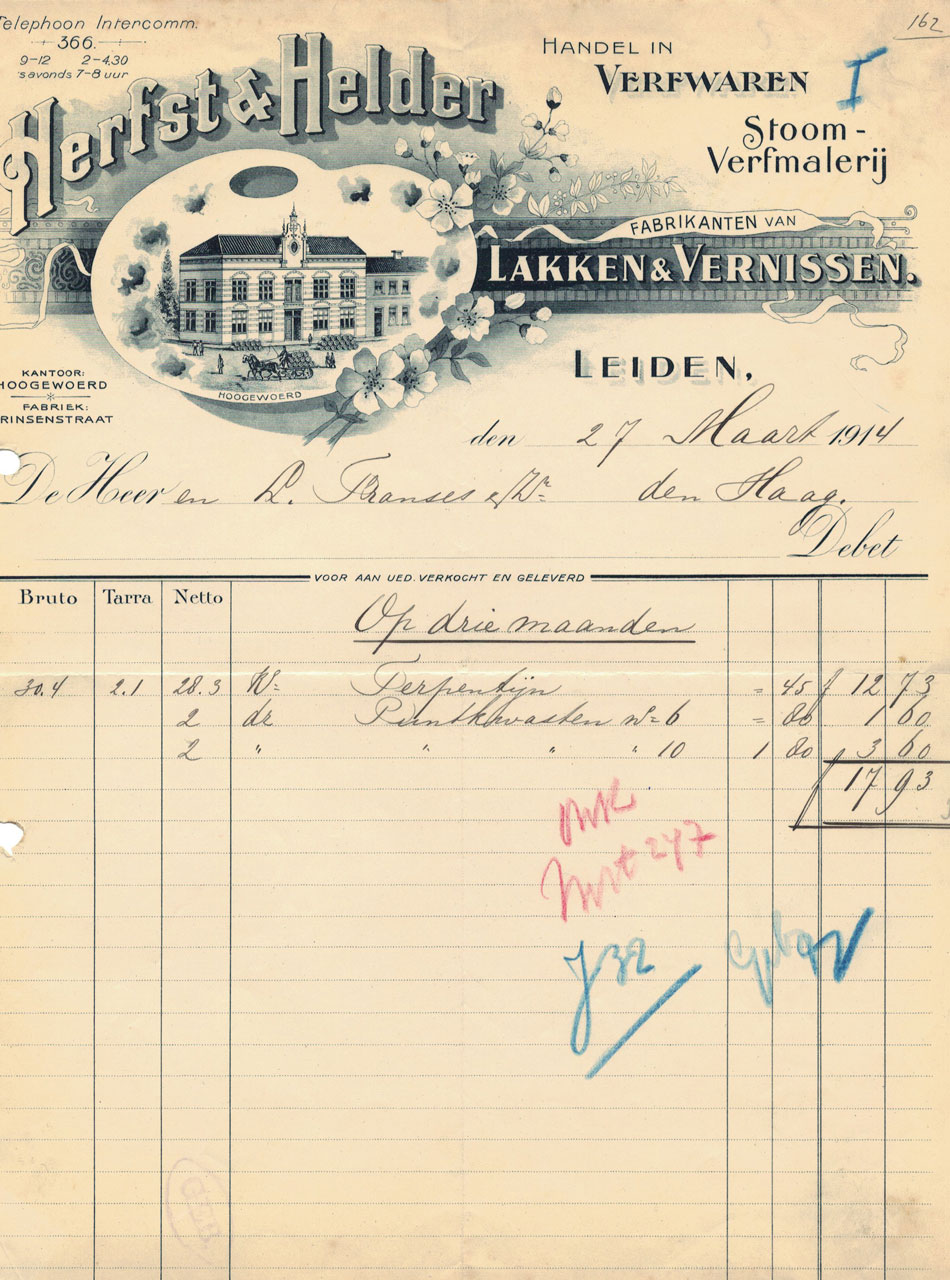 Telephoon Intercomm.
366.
9-12 2-4.30
's avonds 7-8 uur
162
Herfst & Helder
HANDEL IN
VERFWAREN
I
Stoom-
Verfmalerij
FABRIKANTEN VAN
LAKKEN & VERNISSEN.
LEIDEN,
KANTOOR:
HOOGEWOERD
FABRIEK:
PRINSENSTRAAT
HOOGEWOERD
den 27 Maart 1914
De Heeren L. Franses & Zn den Haag.
Debet
VOOR AAN UED. VERKOCHT EN GELEVERD
Bruto Tarra Netto
Op drie maanden
30.4 2.1 28.3 Ko Terpentijn = 45 f 12 73
2 dz Puntkwasten No 6 = 80 1 60
2 " " " " 10 1 80 3 60
f 17 93
247
J 32